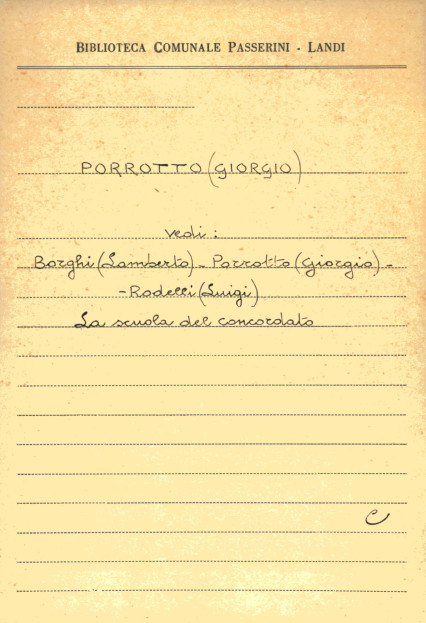 BIBLIOTECA COMUNALE PASSERINI - LANDI
PORROTTO (GIORGIO)
vedi:
Borghi (Lamberto) - Porrotto (Giorgio) -
- Rodelli (Luigi)
La scuola del concordato
C